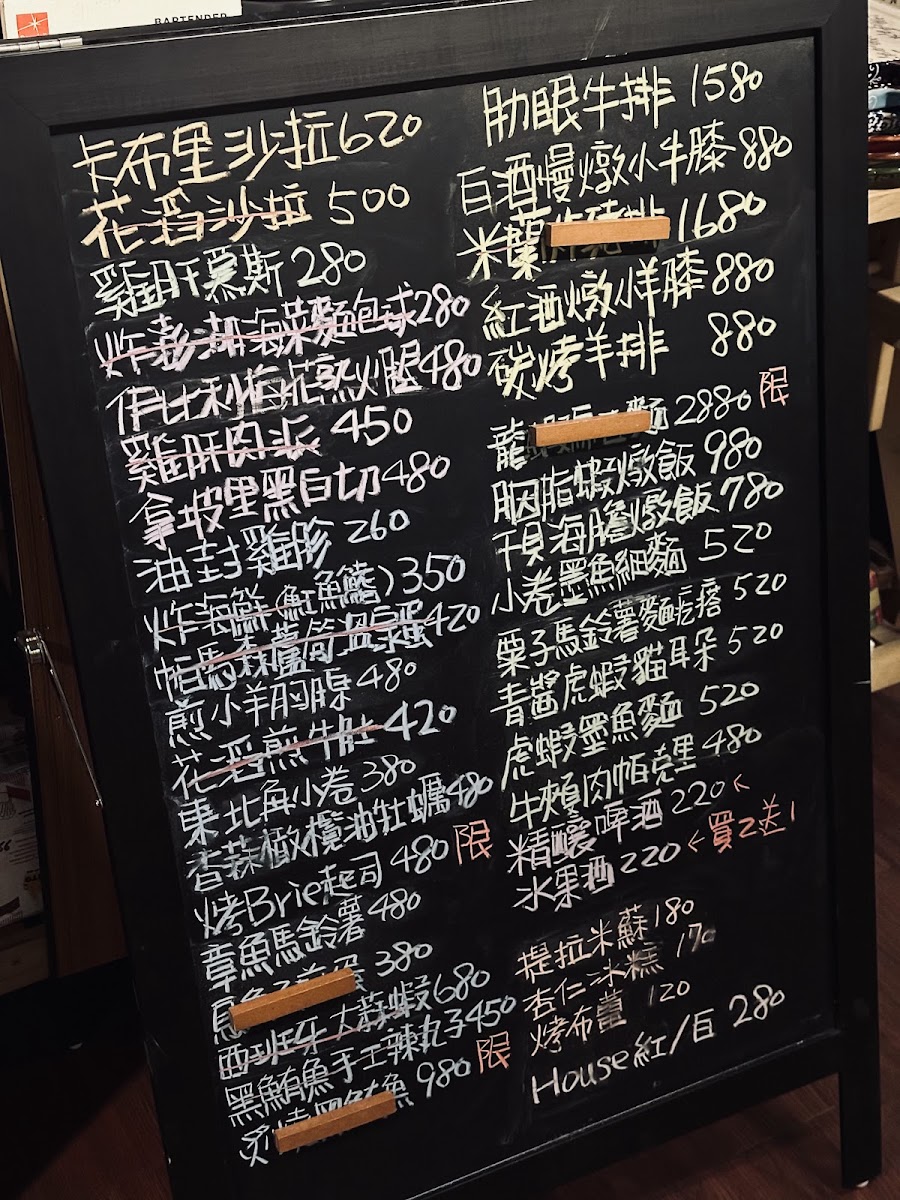 BARTENDER
卡布里沙拉620
花酒沙拉 500
雞肝慕斯 280
炸澎湖海菜麵包球280
伊比利梅花熟火腿480
雞肝肉派 450
拿坡里黑白切480
油封雞胗 260
炸海鮮(魟魚鰭)350
帕馬森蘆筍溫泉蛋420
煎小羊胸腺 480
花酒煎牛肚 420
東北角小卷 380
香蒜橄欖油牡蠣480
烤Brie起司 480 限
章魚馬鈴薯480
380
西班牙大蒜蝦680
黑鮪魚手工辣丸子450
炙燒黑鮪魚 980 限
肋眼牛排 1580
白酒慢燉小牛膝 880
米蘭 排 1680
紅酒燉小羊膝 880
碳烤羊排 880
龍 麵 2880 限
胭脂蝦燉飯 980
干貝海膽燉飯 780
小卷墨魚細麵 520
栗子馬鈴薯麵疙瘩 520
青醬虎蝦貓耳朵 520
虎蝦墨魚麵 520
牛頰肉帕克里 480
精釀啤酒 220
水果酒 220 ← 買2送1
提拉米蘇 180
杏仁冰糕 170
烤布蕾 120
House紅/白 280